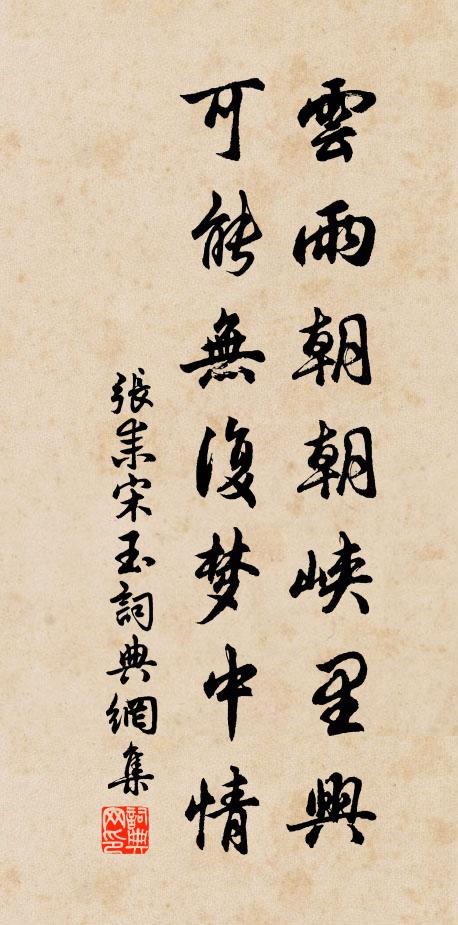 雲雨朝朝峽里興
可能無復梦中情
張耒宋玉詞典網集
詞典网印